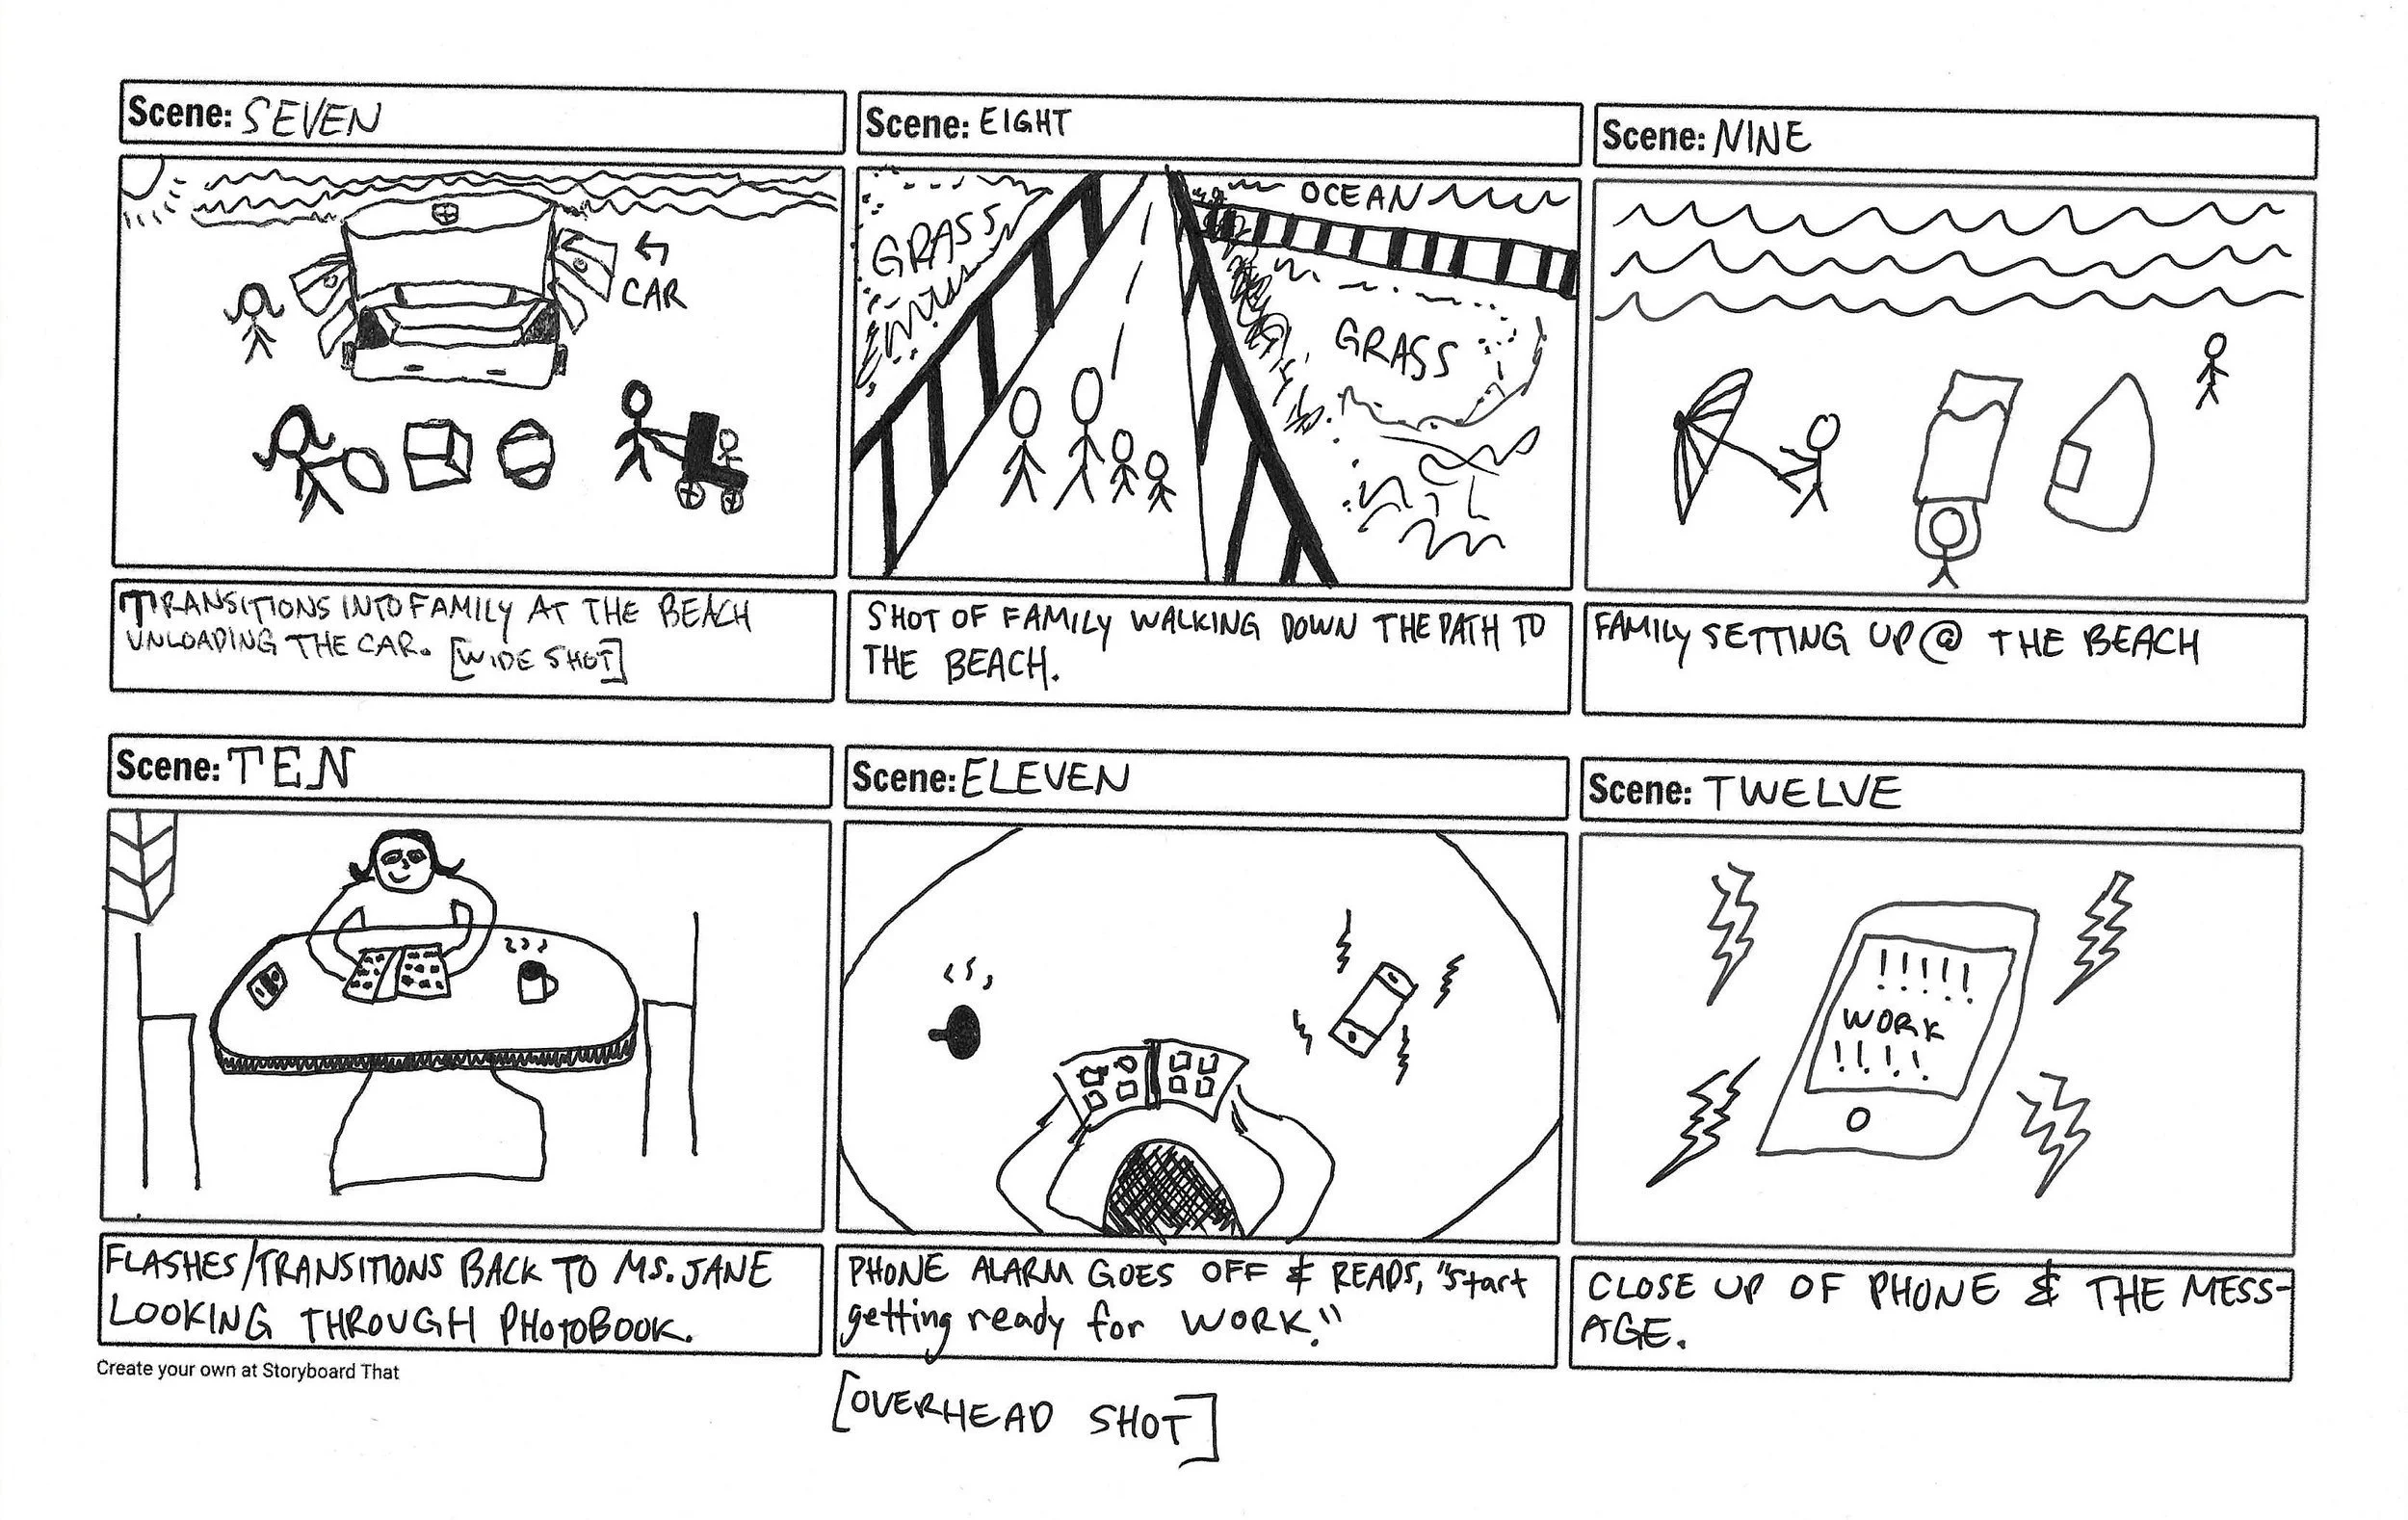 Scene: SEVEN
CAR
TRANSITIONS INTO FAMILY AT THE BEACH
UNLOADING THE CAR. [WIDE SHOT]
Scene: EIGHT
GRASS
OCEAN
GRASS
SHOT OF FAMILY WALKING DOWN THE PATH TO
THE BEACH.
Scene: NINE
FAMILY SETTING UP @ THE BEACH
Scene: TEN
FLASHES/TRANSITIONS BACK TO MS. JANE
LOOKING THROUGH PHOTOBOOK.
Scene: ELEVEN
PHONE ALARM GOES OFF & READS, "Start
getting ready for WORK."
[OVERHEAD SHOT]
Scene: TWELVE
!!!!!
WORK
!!!!
CLOSE UP OF PHONE & THE MESS-
AGE.
Create your own at Storyboard That